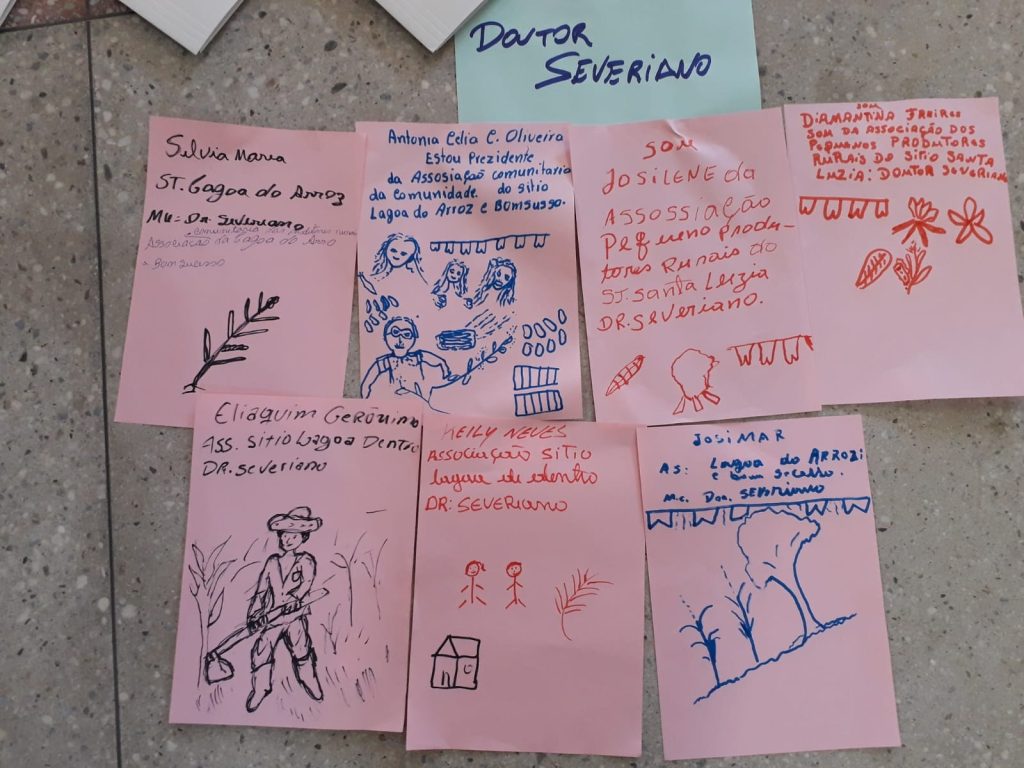 DOUTOR
SEVERIANO
Selvia Maria
ST. Lagoa do Arroz
Mu: Dr. Severiano
Associação da Lagoa do Arro
Antonia Celia C. Oliveira
Estou Prezidente
da Assosiação comunitaria
da Comunidade. do sitio
Lagoa do Arroz e Bomsusso.
SOM
JOSILENE da
ASSOSSIAÇÃO
Pequeno produ-
tores Runais do
ST. Santa Luzia
DR. Severiano.
SOM
DIAMANTINA FREIRES
SOM DA ASSOCIAÇÃO DOS
PEQUENOS PRODUTORES
RURAIS DO SITIO SANTA
LUZIA: DOUTOR SEVERIANO
Eliaquim Gerônimo
ASS. Sitio Lagoa Dentro
DR. severiano
KEILY NEVES
ASSOCIAÇÃO SITIO
lagoa de dentro
DR: SEVERIANO
JOSIMAR
AS: Lagoa do ARROZ
e bom sucesso.
Mc. Dou. SEVERIANO